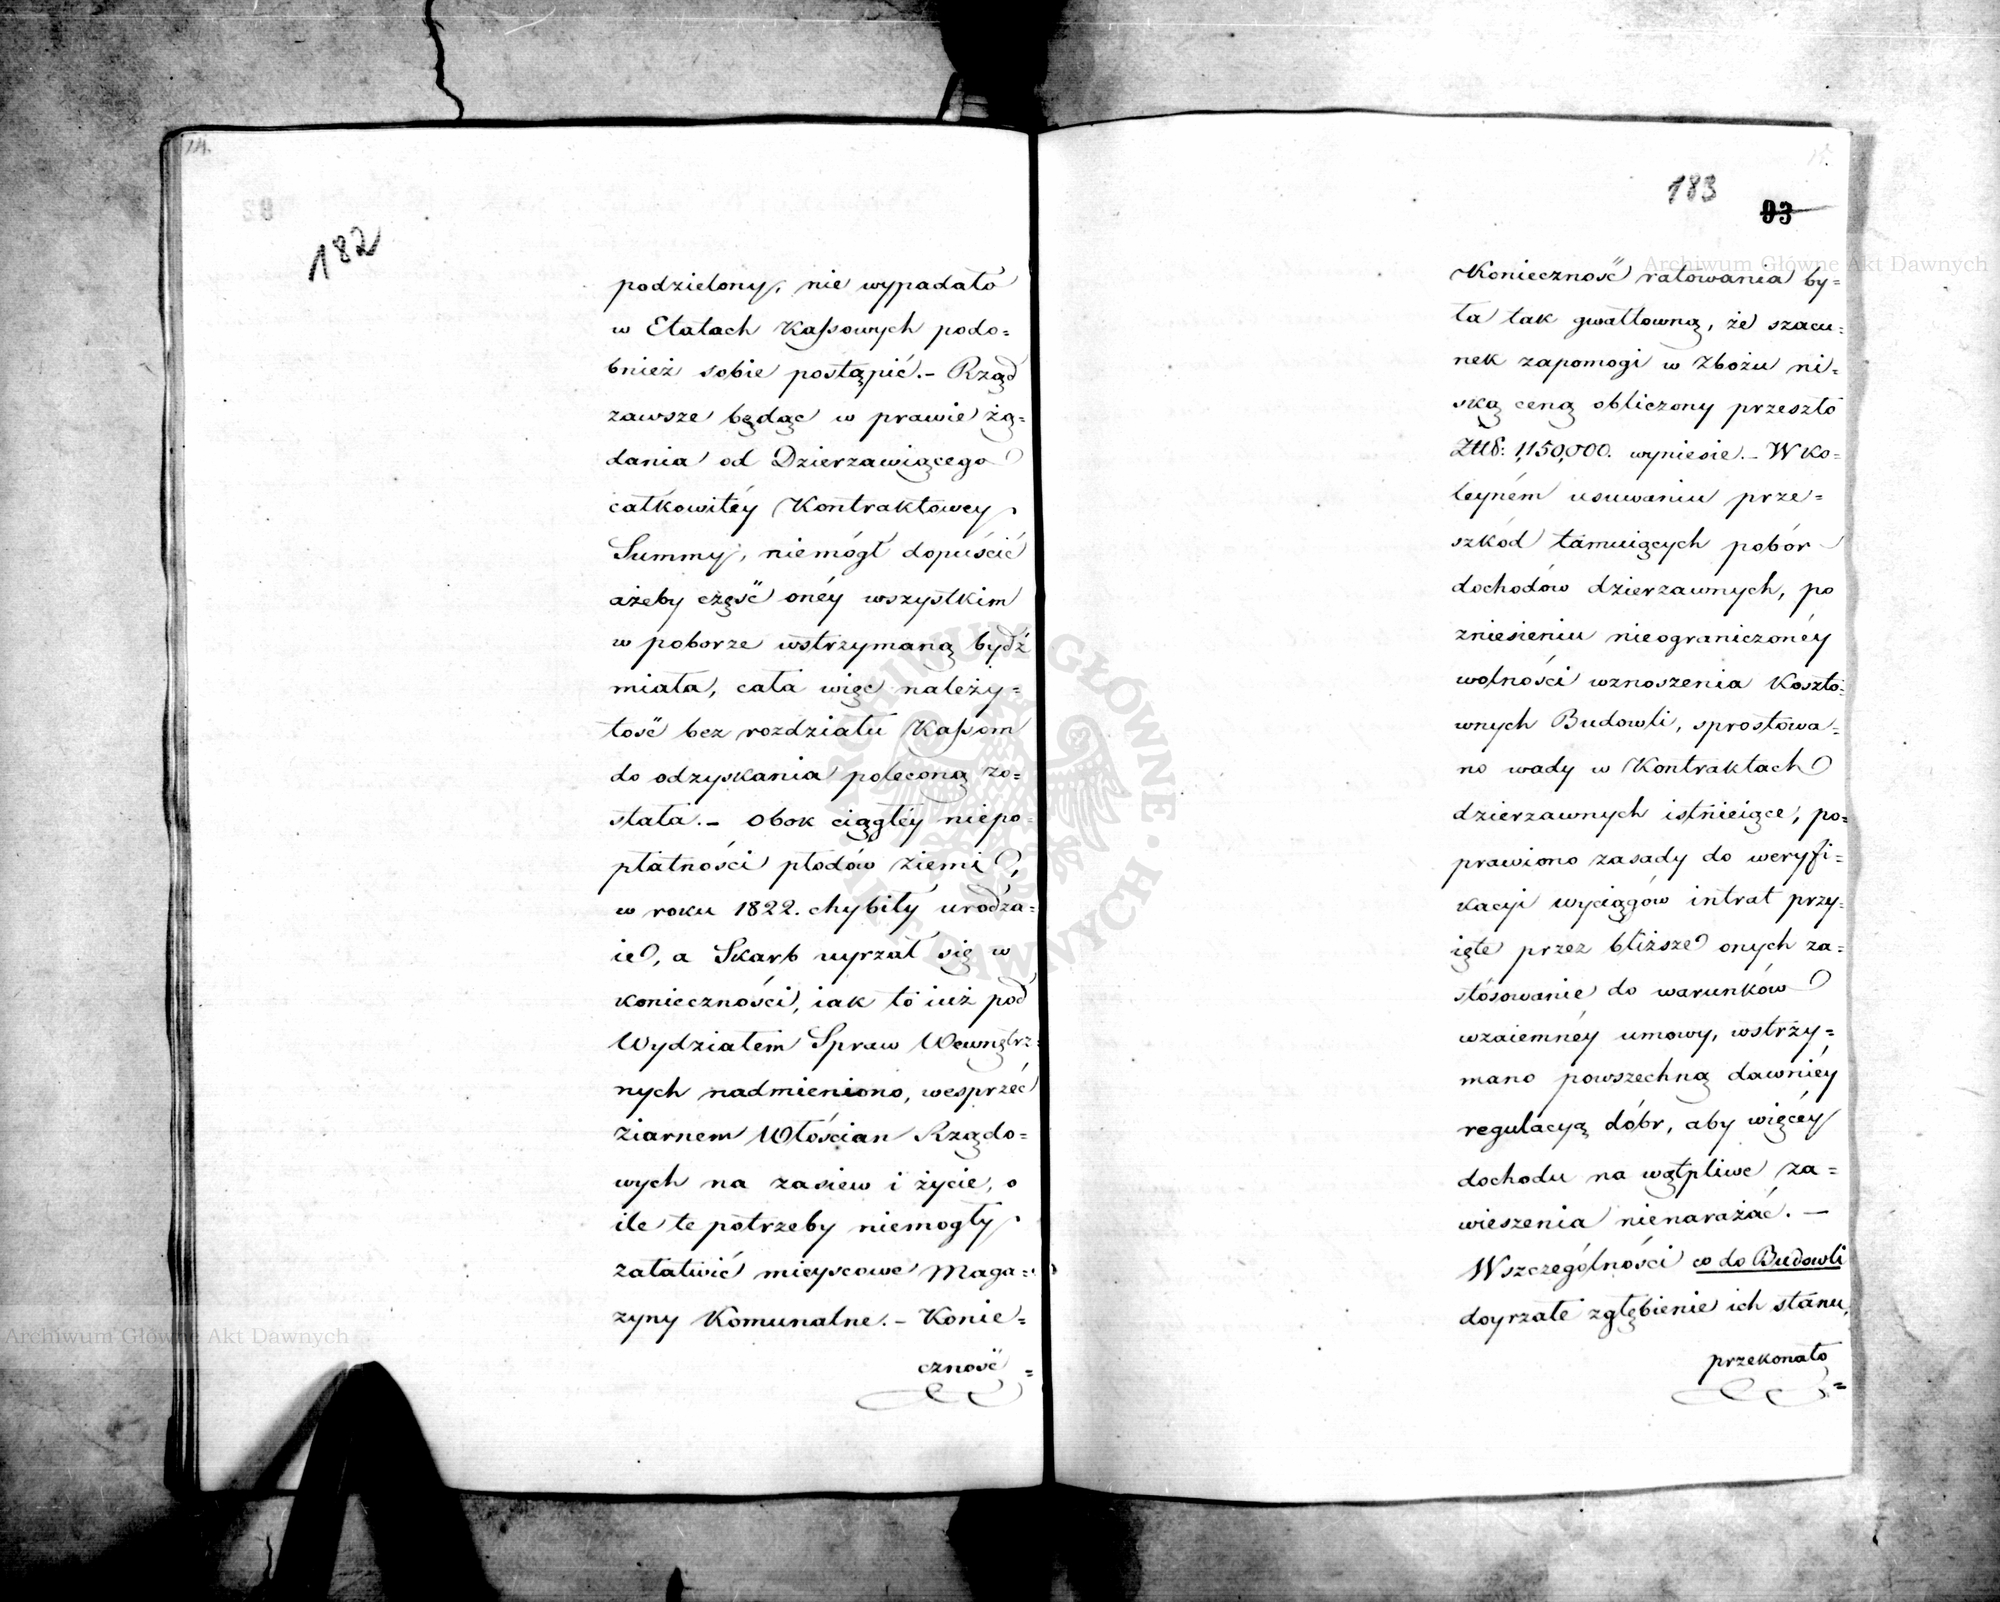 14.
182
podzielony, nie wypadało
w Etatach Kassowych podo=
bnież sobie postąpić. – Rząd
zawsze będąc w prawie żą=
dania od Dzierzawiącego
całkowitéy Kontraktowey
Summy, niemógł dopuścić
ażeby część onéy wszystkim
w poborze wstrzymaną bydź
miała, cała więc należy=
tość bez rozdziału Kassom
do odzyskania poleconą zo=
stała. – Obok ciągłéy niepo=
płatności płodów ziemi,
w roku 1822. chybiły urodza=
ie, a Skarb uyrzał się w
konieczności, iak to iuż pod
Wydziałem Spraw Wewnętrz=
nych nadmieniono, wesprzeć
ziarnem Włościan Rządo=
wych na zasiew i życie, o
ile te potrzeby niemogły
załatwić mieyscowe Maga=
zyny Komunalne. – Konie=
czność =
183
93
Konieczność ratowania by=
ła tak gwałtowną, że szacu=
nek zapomogi w Zbożu ni=
ską ceną obliczony przeszło
Złł: 1,150,000. wyniesie. – W ko=
leyném usuwaniu prze=
szkód tamuiących pobór
dochodów dzierzawnych, po
zniesieniu nieograniczonéy
wolności wznoszenia Koszto=
wnych Budowli, sprostowa=
no wady w Kontraktach
dzierzawnych istnieiące, po=
prawiono zasady do weryfi=
kacyi wyciągów intrat przy=
ięte przez bliższe onych za=
stósowanie do warunków
wzaiemnéy umowy, wstrzy=
mano powszechną dawniéy
regulacyą dóbr, aby więcéy
dochodu na wątpliwe za=
wieszenia nienarażać. –
Wszczególności co do Budowli
doyrzałe zgłębienie ich stanu,
przekonało =
Archiwum Główne Akt Dawnych
Archiwum Główne Akt Dawnych
ARCHIWUM GŁÓWNE AKT DAWNYCH